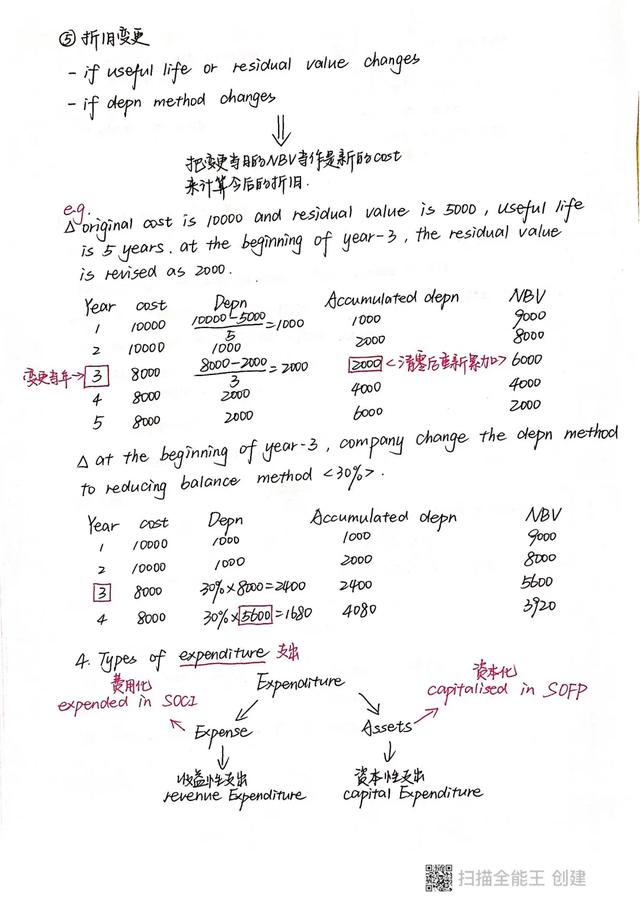 ⑤ 折旧变更
- if useful life or residual value changes
- if depn method changes
⇓
把变更当日的NBV当作是新的cost
来计算今后的折旧.
e.g.
△ original cost is 10000 and residual value is 5000, useful life
is 5 years. at the beginning of year-3, the residual value
is revised as 2000.
Year cost Depn Accumulated depn NBV
1 10000 (10000-5000)/5 = 1000 1000 9000
2 10000 1000 2000 8000
变更当年→ 3 8000 (8000-2000)/3 = 2000 2000 <清零后重新累加> 6000
4 8000 2000 4000 4000
5 8000 2000 6000 2000
△ at the beginning of year-3, company change the depn method
to reducing balance method <30%>.
Year cost Depn Accumulated depn NBV
1 10000 1000 1000 9000
2 10000 1000 2000 8000
3 8000 30%×8000=2400 2400 5600
4 8000 30%×5600=1680 4080 3920
4. Types of expenditure 支出
费用化 Expenditure 资本化
expended in SOCI capitalised in SOFP
Expense Assets
收益性支出 资本性支出
revenue Expenditure capital Expenditure
扫描全能王 创建